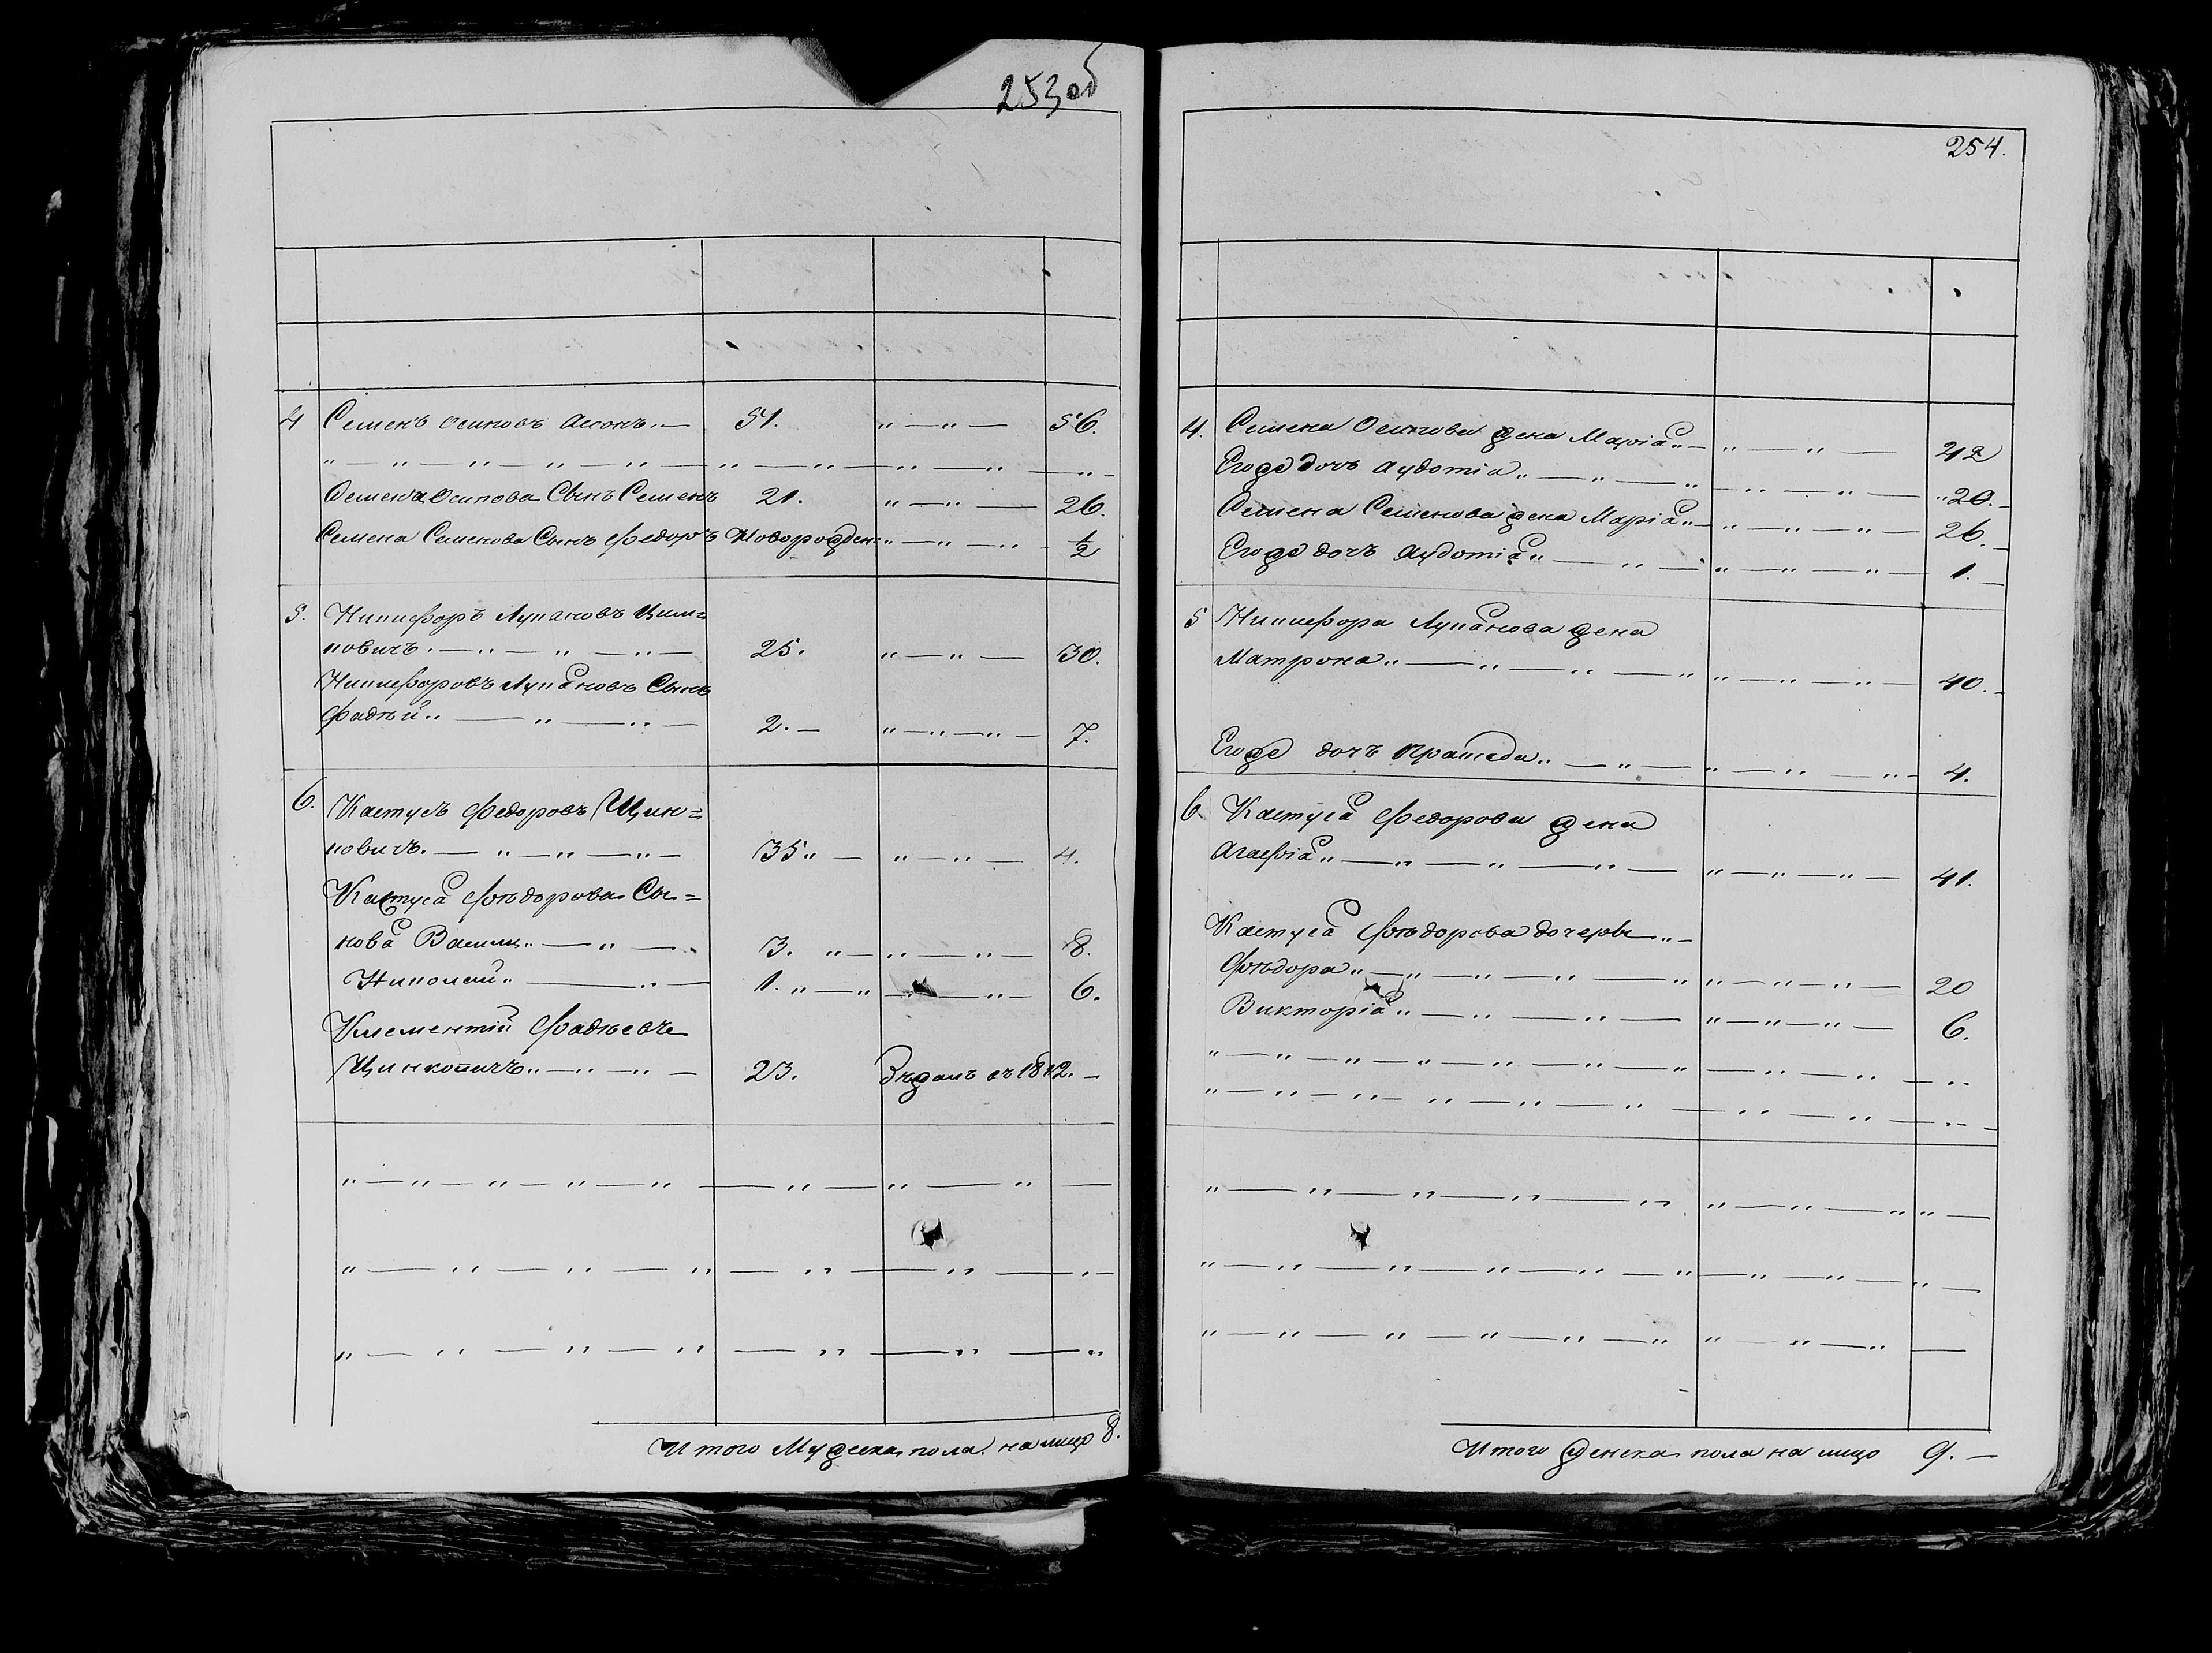 253 об
4 Семенъ Осиповъ Асонъ „ — 51. „ — „ — 56.
„ — „ — „ — „ — „ — „ — „ — „ — „ — „ —
Семена Осипова Сынъ Семенъ 21. „ — „ — 26.
Семена Семенова Сынъ Федоръ Новорожден: „ — „ — „ 1/2
5. Никифоръ Лупановъ Цын=
ковичъ. — „ — „ — „ — 25. „ — „ — 30.
Никифоровъ Лупановъ Сынъ
Фадѣй „ — „ — „ — 2. — „ — „ — „ — 7.
6. Кастусь Федоровъ Цын=
ковичъ. — „ — „ — „ — 35 „ — „ — „ — 4.
Кастуса Фѣдорова Сы=
нова Василь „ — „ — „ 3. „ — „ — „ — 8.
Николай „ — „ — 1. „ — „ — „ — 6.
Клементій Фадѣевъ
Цинковичъ „ — „ — „ — 23. Бѣжалъ въ 1812. —
„ — „ — „ — „ — „ — „ — „ — „ —
„ — „ — „ — „ — „ — „ — „ —
„ — „ — „ — „ — „ — „ — „
Итого Мужеска пола на лицо 8.
254.
4. Семена Осипова жена Марія „ — „ — „ — 42
Егоже дочь Аудотіа „ — „ — „ — „ — „ — „ 20. —
Семена Семенова жена Марія „ — „ — „ — „ — 26. —
Егоже дочь Аудотіа „ — „ — „ — „ — „ — 1. —
5 Никифора Лупанова жена
Матрона „ — „ — „ — „ „ — „ — „ — 40. —
Егоже дочь Праседа „ — „ — „ — „ — „ — 4.
6. Кастуса Федорова жена
Агафіа „ — „ — „ — „ — „ — „ — „ — 41.
Кастуса Фѣдорова дочеры „ —
Фѣдора „ — „ — „ — „ — „ „ — „ — „ — 20
Викторіа „ — „ — „ — „ — „ — „ — 6.
„ — „ — „ — „ — „ — „ — „ — „ — „ — „
„ — „ — „ — „ — „ — „ — „ — „ — „ —
„ — „ — „ — „ — „ „ — „ — „ „ —
„ — „ — „ — „ — „ — „ — „ — „ — „ —
„ — „ — „ — „ — „ — „ „ — „ — „ —
Итого женска пола на лицо 9. —